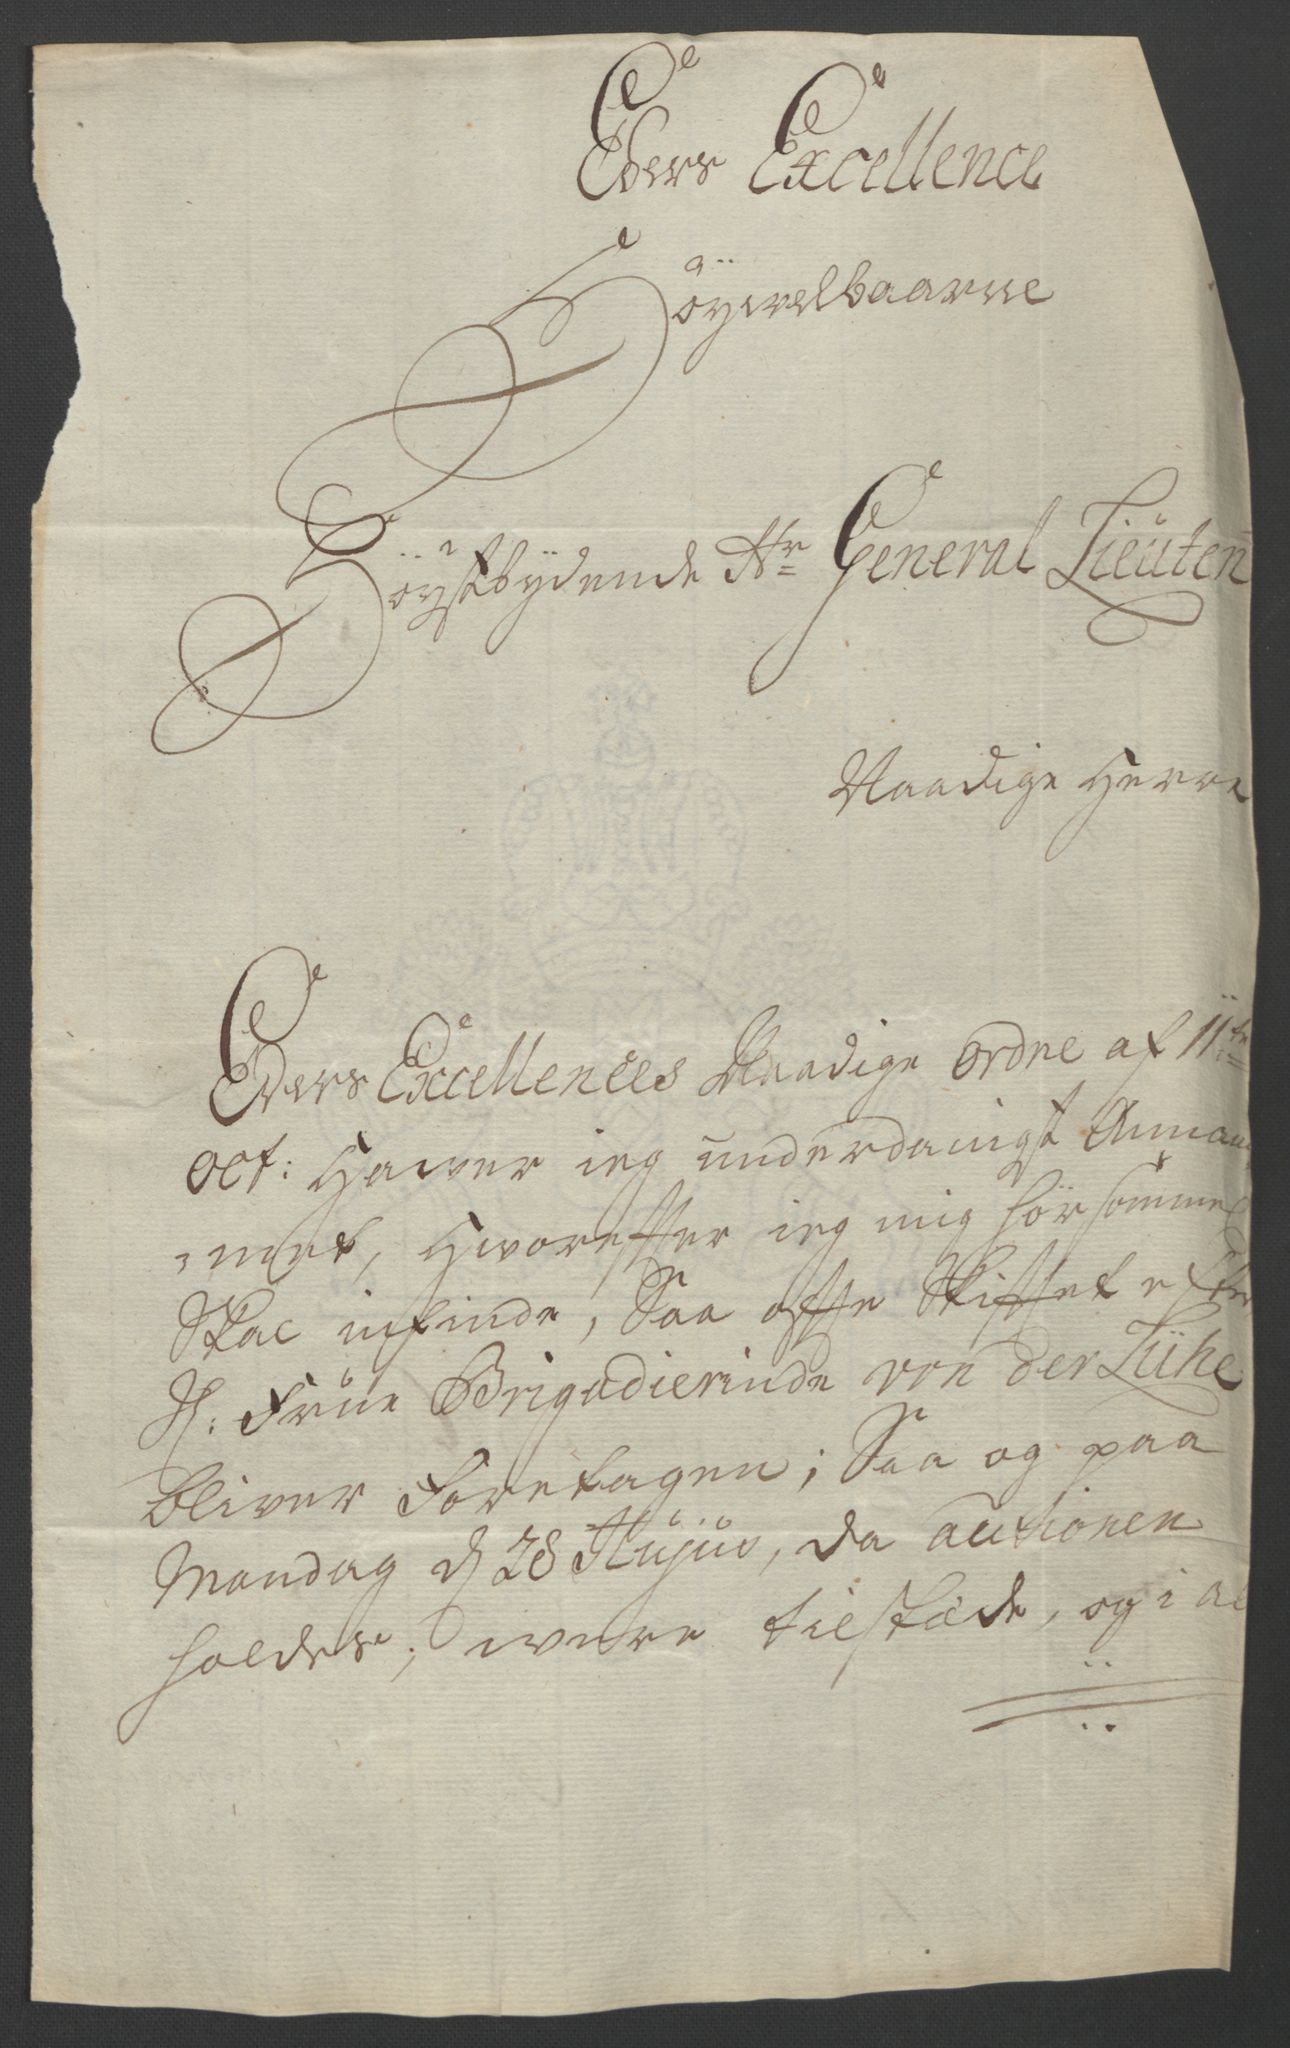 Eders Excellence
Höyvelbaarne
Höystbydende Hr General Lieuten
Naadige Herre
Eders Excellences Naadige ordre af 11te
oct: Haver ieg underdanigst Annam
met, Hvorefter ieg mig hörsommest
Skal infinde, Saa ofte Skiftet efter
Sl. Frue Brigadierinde von der Lühe
bliver Foretagen; Saa og paa
Mandag d 28 Hujus, da auctionen
holdes, være tilstæde, og i al